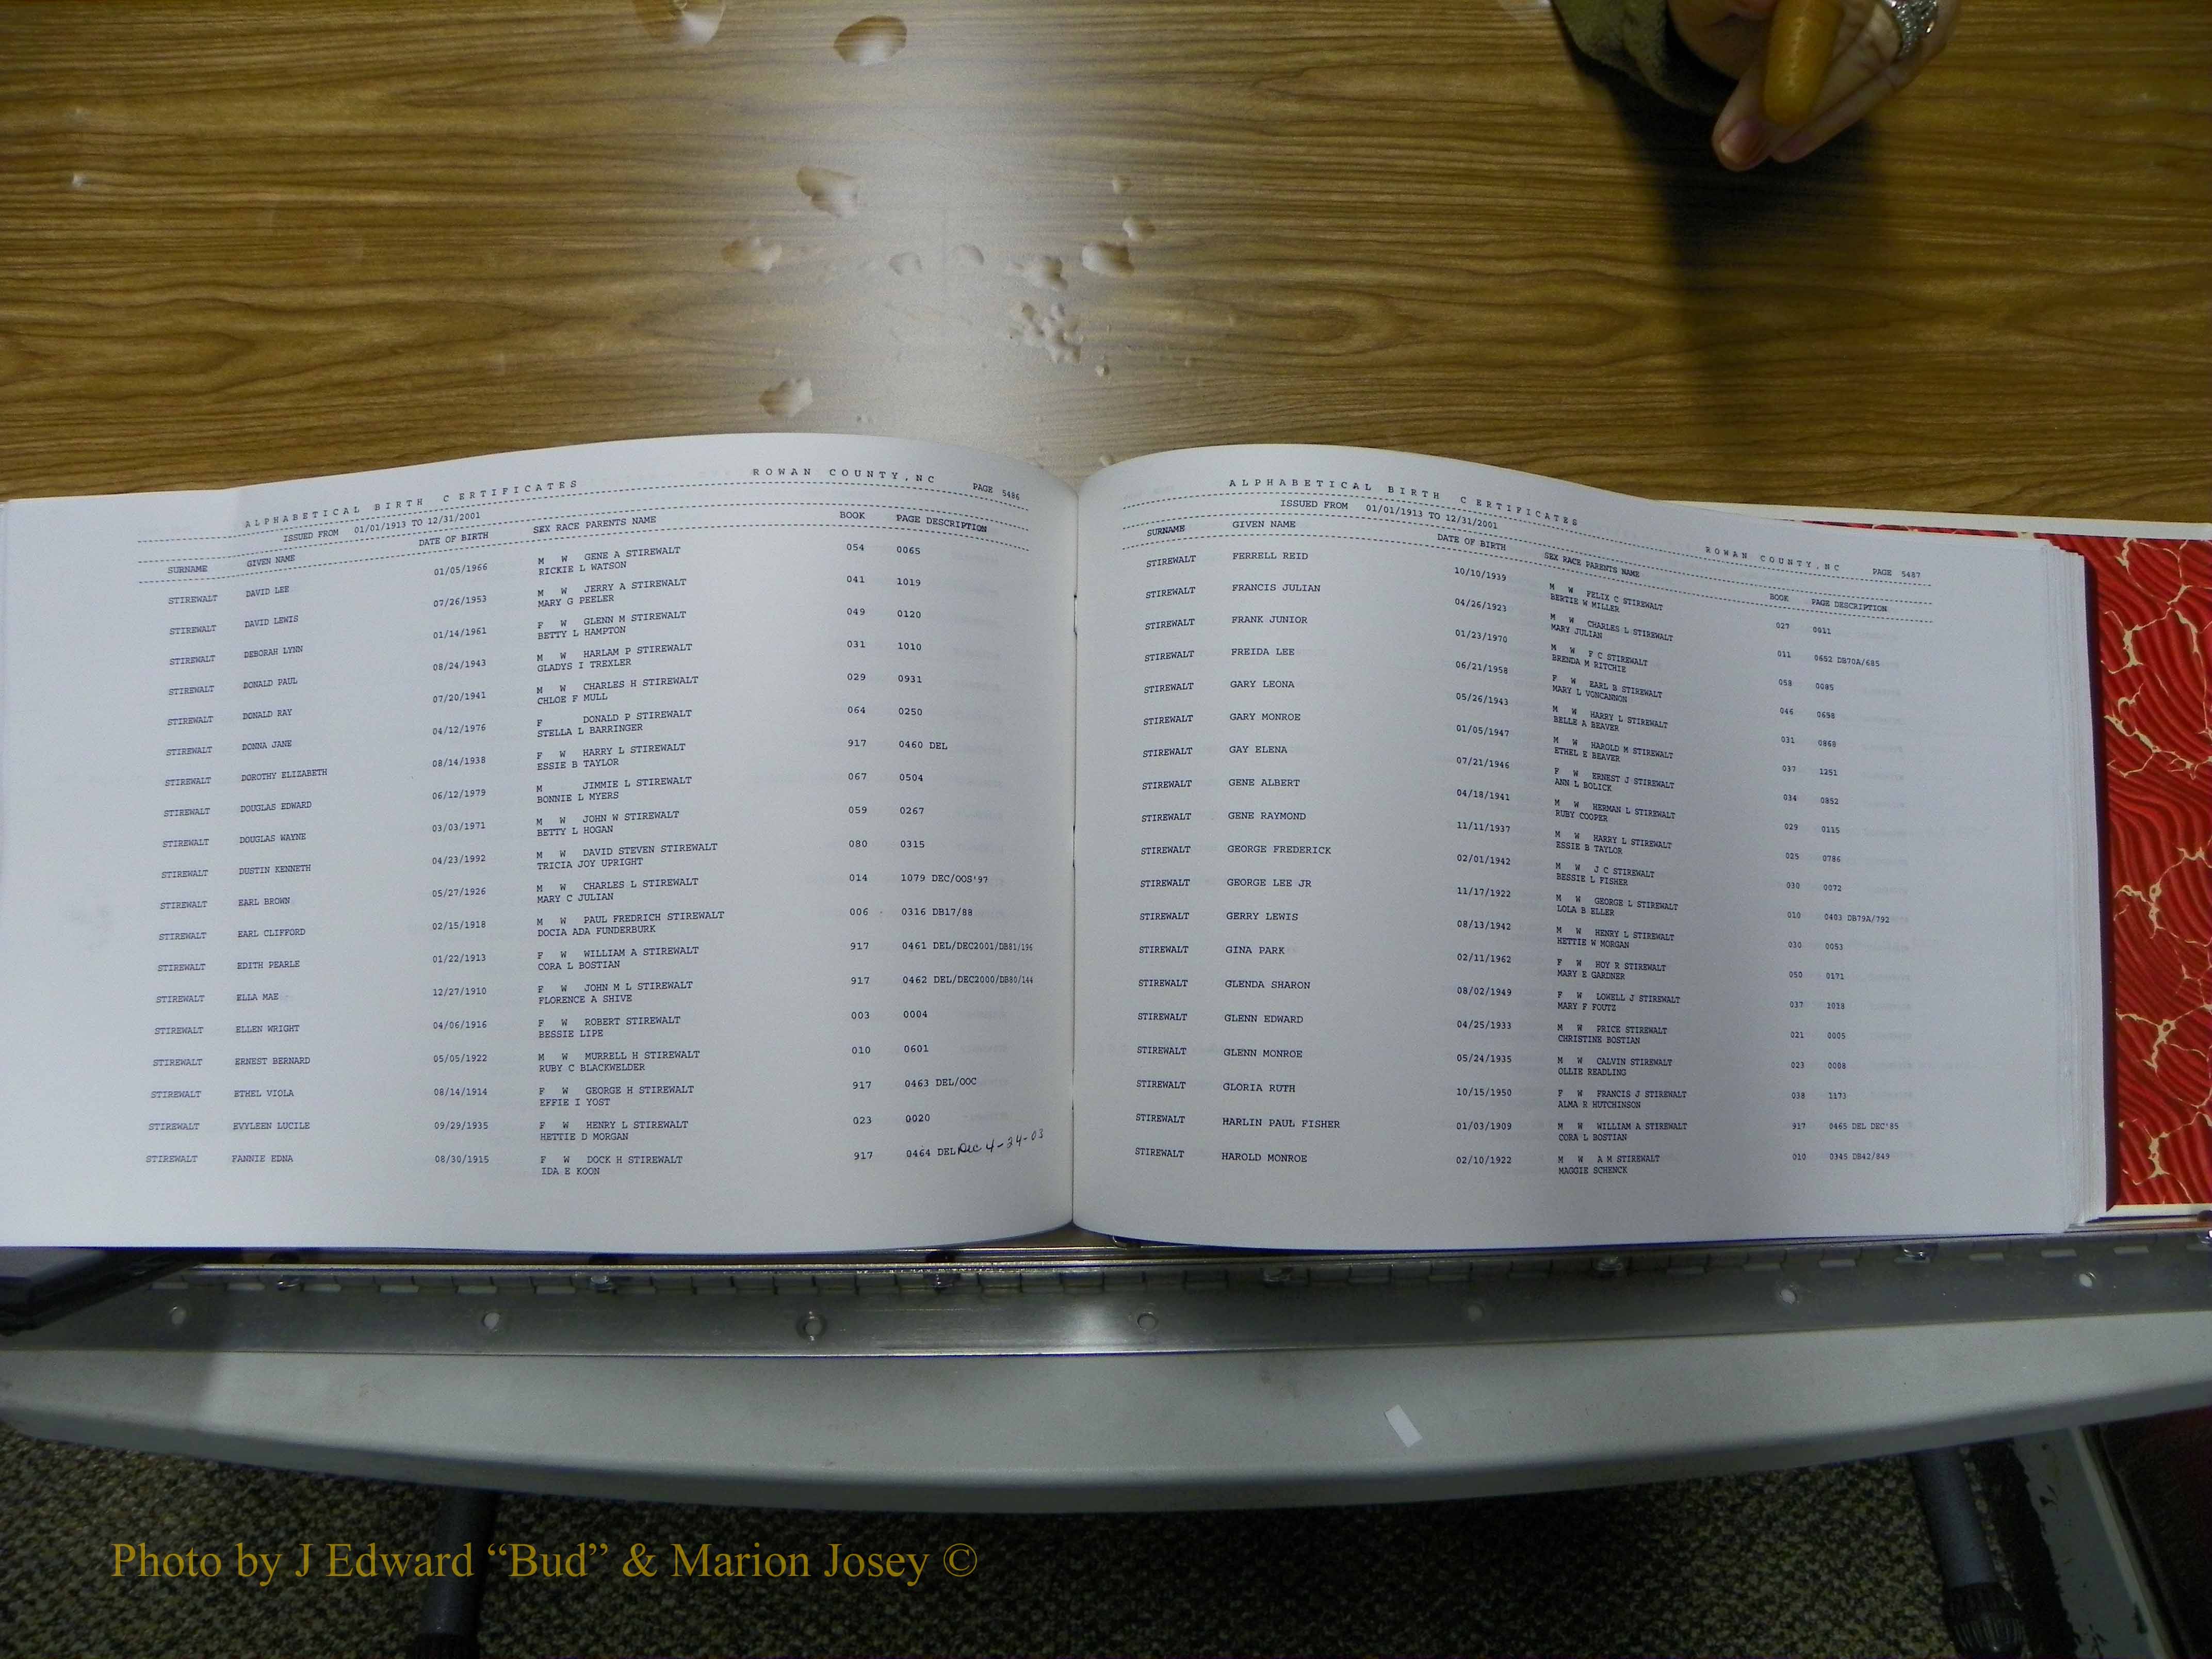 ALPHABETICAL BIRTH CERTIFICATES ROWAN COUNTY,NC PAGE 5486
ISSUED FROM 01/01/1913 TO 12/31/2001
SURNAME GIVEN NAME DATE OF BIRTH SEX RACE PARENTS NAME BOOK PAGE DESCRIPTION
STIREWALT DAVID LEE 01/05/1966 M W GENE A STIREWALT 054 0065
RICKIE L WATSON
STIREWALT DAVID LEWIS 07/26/1953 M W JERRY A STIREWALT 041 1019
MARY G PEELER
STIREWALT DEBORAH LYNN 01/14/1961 F W GLENN M STIREWALT 049 0120
BETTY L HAMPTON
STIREWALT DONALD PAUL 08/24/1943 M W HARLAM P STIREWALT 031 1010
GLADYS I TREXLER
STIREWALT DONALD RAY 07/20/1941 M W CHARLES H STIREWALT 029 0931
CHLOE F MULL
STIREWALT DONNA JANE 04/12/1976 F DONALD P STIREWALT 064 0250
STELLA L BARRINGER
STIREWALT DOROTHY ELIZABETH 08/14/1938 F W HARRY L STIREWALT 917 0460 DEL
ESSIE B TAYLOR
STIREWALT DOUGLAS EDWARD 06/12/1979 M JIMMIE L STIREWALT 067 0504
BONNIE L MYERS
STIREWALT DOUGLAS WAYNE 03/03/1971 M W JOHN W STIREWALT 059 0267
BETTY L HOGAN
STIREWALT DUSTIN KENNETH 04/23/1992 M W DAVID STEVEN STIREWALT 080 0315
TRICIA JOY UPRIGHT
STIREWALT EARL BROWN 05/27/1926 M W CHARLES L STIREWALT 014 1079 DEC/OOS'97
MARY C JULIAN
STIREWALT EARL CLIFFORD 02/15/1918 M W PAUL FREDRICH STIREWALT 006 0316 DB17/88
DOCIA ADA FUNDERBURK
STIREWALT EDITH PEARLE 01/22/1913 F W WILLIAM A STIREWALT 917 0461 DEL/DEC2001/DB81/196
CORA L BOSTIAN
STIREWALT ELLA MAE 12/27/1910 F W JOHN M L STIREWALT 917 0462 DEL/DEC2000/DB80/144
FLORENCE A SHIVE
STIREWALT ELLEN WRIGHT 04/06/1916 F W ROBERT STIREWALT 003 0004
BESSIE LIPE
STIREWALT ERNEST BERNARD 05/05/1922 M W MURRELL H STIREWALT 010 0601
RUBY C BLACKWELDER
STIREWALT ETHEL VIOLA 08/14/1914 F W GEORGE H STIREWALT 917 0463 DEL/OOC
EFFIE I YOST
STIREWALT EVYLEEN LUCILE 09/29/1935 F W HENRY L STIREWALT 023 0020
HETTIE D MORGAN
STIREWALT FANNIE EDNA 08/30/1915 F W DOCK H STIREWALT 917 0464 DEL Dec 4-24-03
IDA E KOON
ALPHABETICAL BIRTH CERTIFICATES ROWAN COUNTY,NC PAGE 5487
ISSUED FROM 01/01/1913 TO 12/31/2001
SURNAME GIVEN NAME DATE OF BIRTH SEX RACE PARENTS NAME BOOK PAGE DESCRIPTION
STIREWALT FERRELL REID 10/10/1939 M W FELIX C STIREWALT 027 0011
BERTIE W MILLER
STIREWALT FRANCIS JULIAN 04/26/1923 M W CHARLES L STIREWALT 011 0652 DB70A/685
MARY JULIAN
STIREWALT FRANK JUNIOR 01/23/1970 M W F C STIREWALT 058 0085
BRENDA M RITCHIE
STIREWALT FREIDA LEE 06/21/1958 F W EARL B STIREWALT 046 0658
MARY L VONCANNON
STIREWALT GARY LEONA 05/26/1943 M W HARRY L STIREWALT 031 0868
BELLE A BEAVER
STIREWALT GARY MONROE 01/05/1947 M W HAROLD M STIREWALT 037 1251
ETHEL E BEAVER
STIREWALT GAY ELENA 07/21/1946 F W ERNEST J STIREWALT 034 0852
ANN L BOLICK
STIREWALT GENE ALBERT 04/18/1941 M W HERMAN L STIREWALT 029 0115
RUBY COOPER
STIREWALT GENE RAYMOND 11/11/1937 M W HARRY L STIREWALT 025 0786
ESSIE B TAYLOR
STIREWALT GEORGE FREDERICK 02/01/1942 M W J C STIREWALT 030 0072
BESSIE L FISHER
STIREWALT GEORGE LEE JR 11/17/1922 M W GEORGE L STIREWALT 010 0403 DB79A/792
LOLA B ELLER
STIREWALT GERRY LEWIS 08/13/1942 M W HENRY L STIREWALT 030 0053
HETTIE W MORGAN
STIREWALT GINA PARK 02/11/1962 F W HOY R STIREWALT 050 0171
MARY E GARDNER
STIREWALT GLENDA SHARON 08/02/1949 F W LOWELL J STIREWALT 037 1018
MARY F FOUTZ
STIREWALT GLENN EDWARD 04/25/1933 M W PRICE STIREWALT 021 0005
CHRISTINE BOSTIAN
STIREWALT GLENN MONROE 05/24/1935 M W CALVIN STIREWALT 023 0008
OLLIE READLING
STIREWALT GLORIA RUTH 10/15/1950 F W FRANCIS J STIREWALT 038 1173
ALMA R HUTCHINSON
STIREWALT HARLIN PAUL FISHER 01/03/1909 M W WILLIAM A STIREWALT 917 0465 DEL DEC'85
CORA L BOSTIAN
STIREWALT HAROLD MONROE 02/10/1922 M W A M STIREWALT 010 0345 DB42/849
MAGGIE SCHENCK
Photo by J Edward “Bud” & Marion Josey ©